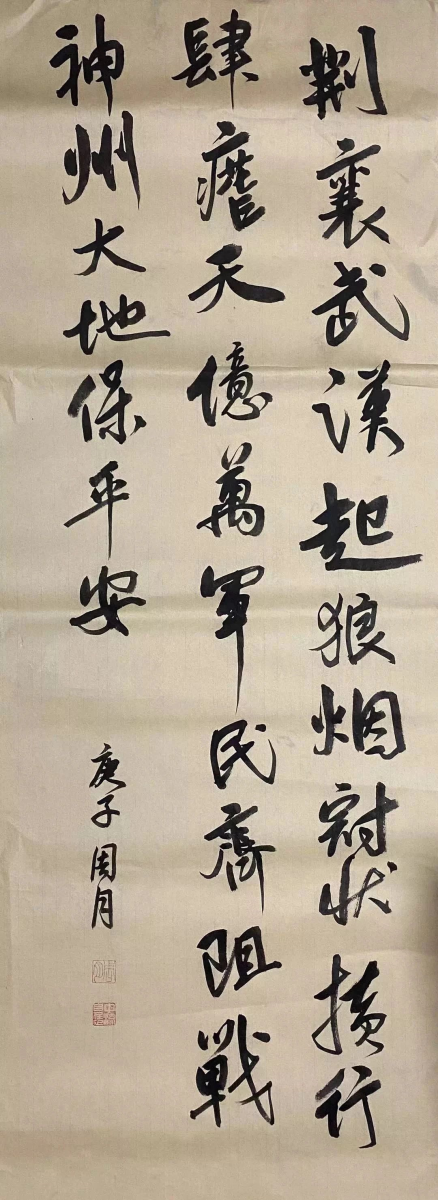 荆襄武漢起狼烟冠状横行
肆天億萬軍民齊阻戰
神州大地保平安
庚子周月